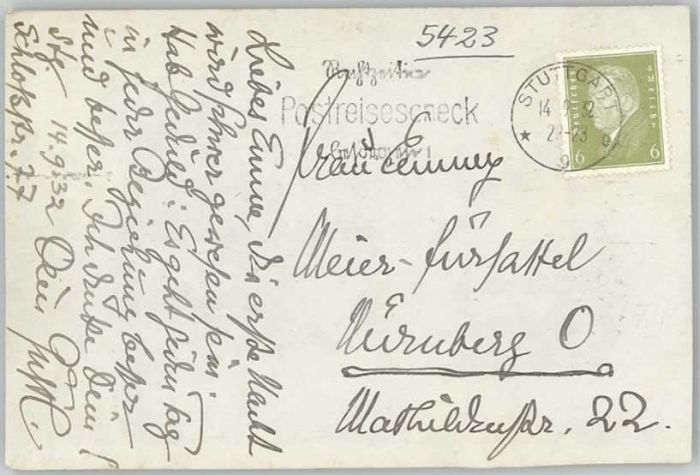 5423
Rechtzeitig
Postreisescheck
besorgen!
STUTTGART
14.9.32
Deutsches Reich
6 6
Frau Emmy
Meier-Fürsattel
Nürnberg O
Mathildenstr. 22.
Liebes Emmi, die erste Nacht
wird schwer gewesen sein
Hab Geduld! Es geht jeden Tag
in jeder Beziehung besser
und besser. Ich denke Dein!
Stg. 14.9.32 Dein
Schloßstr. 77